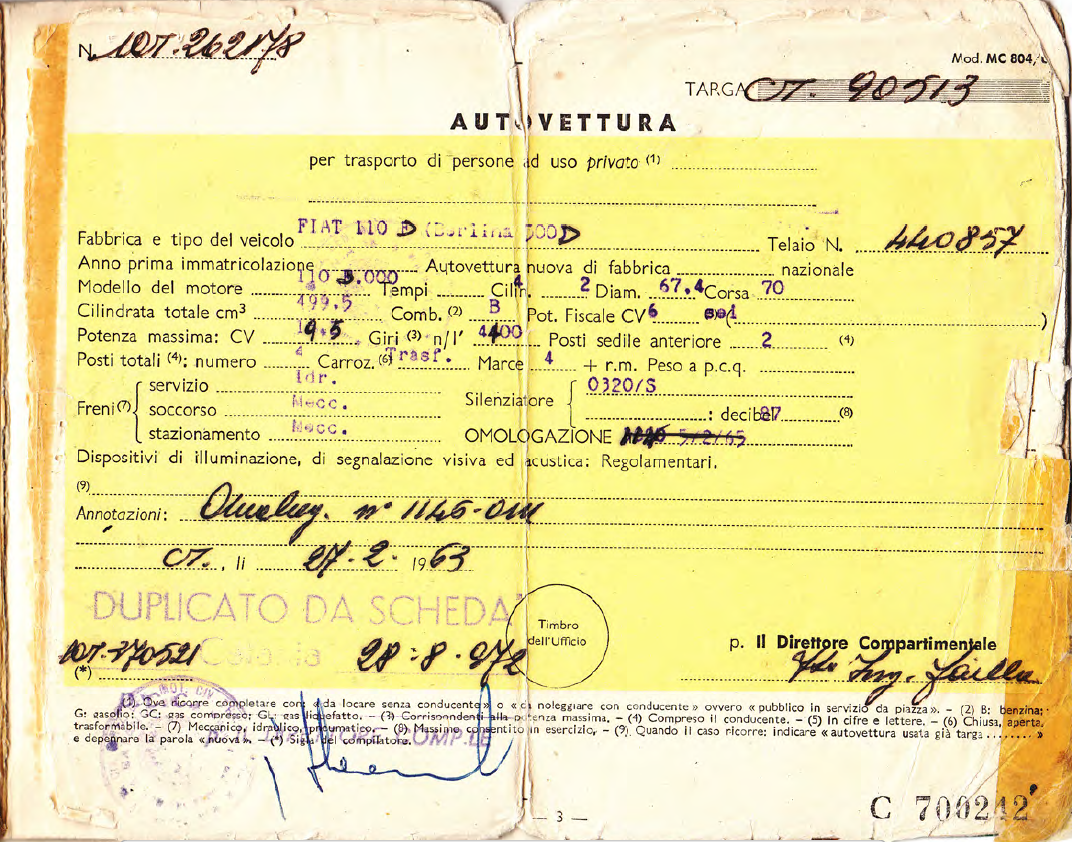 N. 10T.262178
Mod. MC 804
TARGA CT. 90513
AUTOVETTURA
per trasporto di persone ad uso privato (1)
Fabbrica e tipo del veicolo FIAT 110 D (Berlina 500D Telaio N. 440857
Anno prima immatricolazione Autovettura nuova di fabbrica nazionale
Modello del motore 110 D.000 Tempi 4 Cilin. 2 Diam. 67.4 Corsa 70
Cilindrata totale cm³ 499.5 Comb. (2) B Pot. Fiscale CV 6 sei ( )
Potenza massima: CV 19.5 Giri (3) n/1' 4400 Posti sedile anteriore 2 (4)
Posti totali (4): numero 4 Carroz. (6) Trasf. Marce 4 + r.m. Peso a p.c.q.
Freni (7) servizio Idr. Silenziatore 0320/S
soccorso Mecc. : decibel 87 (8)
stazionamento Mecc. OMOLOGAZIONE 5/2/65
Dispositivi di illuminazione, di segnalazione visiva ed acustica: Regolamentari.
(9)
Annotazioni: Omolog. n° 1146-OM
CT. , li 27-2- 1963
DUPLICATO DA SCHEDA
Catania
Timbro
dell'Ufficio
p. Il Direttore Compartimentale
10T.370521 28-8-972
(*)
(1) Ove ricorre completare con: « da locare senza conducente » o « da noleggiare con conducente » ovvero « pubblico in servizio da piazza ». – (2) B: benzina;
G: gasolio; GC: gas compresso; GL: gas liquefatto. – (3) Corrispondenti alla potenza massima. – (4) Compreso il conducente. – (5) In cifre e lettere. – (6) Chiusa, aperta,
trasformabile. – (7) Meccanico, idraulico, pneumatico. – (8) Massimo consentito in esercizio. – (9) Quando il caso ricorre: indicare « autovettura usata già targa ........ »
e depennare la parola « nuova ». – (*) Sigla del compilatore.
— 3 —
C 700242